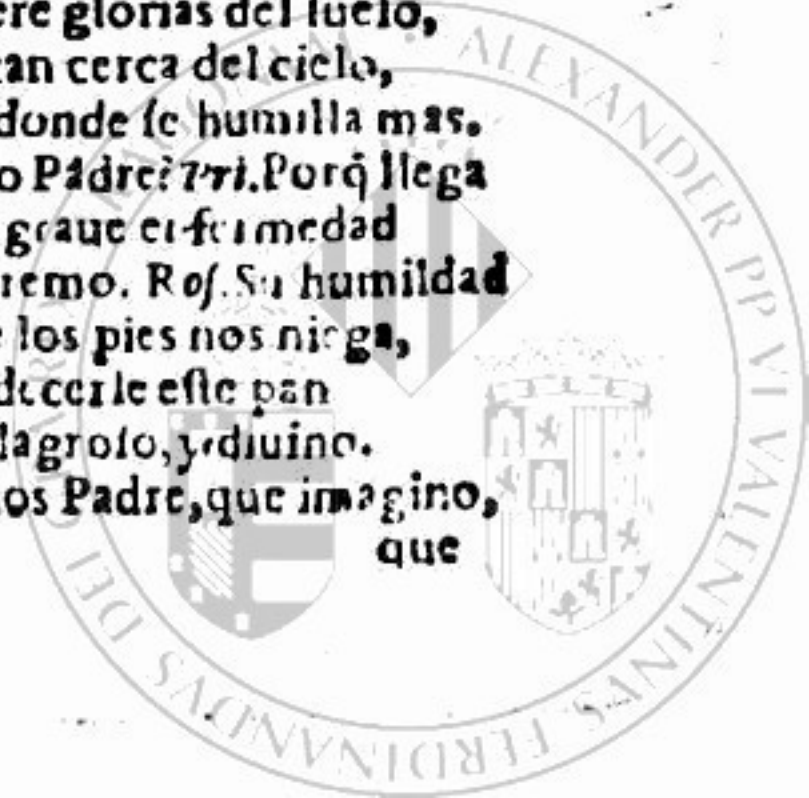 ere glorias del suelo,
tan cerca del cielo,
donde se humilla mas.
o Padre? Pri. Porq̃ llega
graue enfermedad
remo. Ros. Su humildad
e los pies nos niega,
decerle este pan
lagroso, y diuino.
os Padre, que imagino,
que
ALEXANDER PP VI VALENTINVS. FERDINANDVS